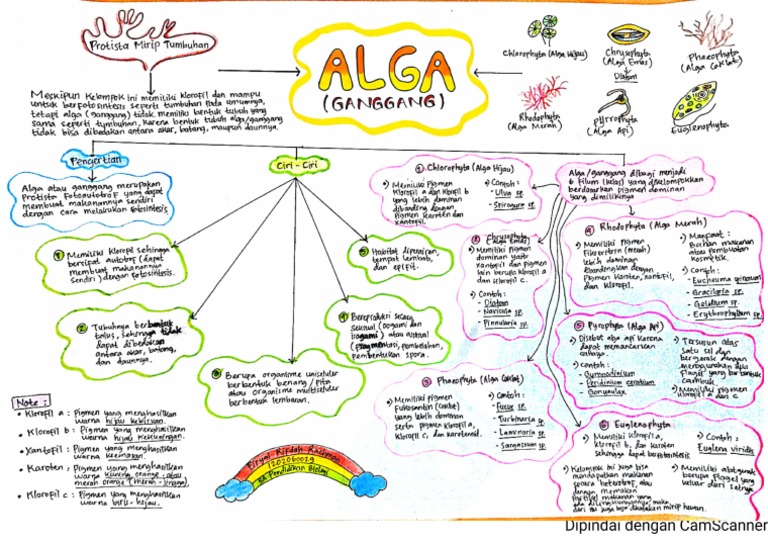 Protista Mirip Tumbuhan
Meskipun Kelompok ini memiliki klorofil dan mampu
untuk berfotosintesis seperti tumbuhan pada umumnya,
tetapi alga (ganggang) tidak memiliki bentuk tubuh yang
sama seperti tumbuhan, karena bentuk tubuh alga/ganggang
tidak bisa dibedakan antara akar, batang, maupun daunnya.
ALGA
(GANGGANG)
Chlorophyta (Alga Hijau)
Chrysophyta
(Alga Emas)
Diatom
Phaeophyta
(Alga Coklat)
Rhodophyta
(Alga Merah)
Pyrrophyta
(Alga Api)
Euglenophyta
Pengertian
Alga atau ganggang merupakan
Protista Fotoautotrof yang dapat
membuat makanannya sendiri
dengan cara melakukan fotosintesis.
Ciri - Ciri
① Memiliki klorofil sehingga
bersifat autotrof (dapat
membuat makanannya
sendiri) dengan fotosintesis.
② Tubuhnya berbentuk
talus, sehingga tidak
dapat dibedakan
antara akar, batang,
dan daunnya.
③ Berupa organisme uniseluler
berbentuk benang / pita
atau organisme multiseluler
berbentuk lembaran.
④ Bereproduksi secara
seksual (oogami dan
isogami) atau aseksual
(fragmentasi, pembelahan,
pembentukan spora.
⑤ Habitat diperairan,
tempat lembab,
dan epifit.
Alga/ganggang dibagi menjadi
6 filum (kelas) yang dikelompokkan
berdasarkan pigmen dominan
yang dimilikinya
① Chlorophyta (Alga Hijau)
Memiliki Pigmen
Klorofil a dan klorofil b
yang lebih dominan
dibanding dengan
pigmen karoten dan
xantofil.
Contoh :
- Ulva sp.
- Spirogyra sp.
② Chrysophyta
(Alga Emas)
Memiliki pigmen
dominan yaitu
xantofil dan pigmen
lain berupa klorofil a
dan klorofil c.
Contoh :
- Diatom
- Navicula sp.
- Pinnularia sp.
③ Phaeophyta (Alga Coklat)
Memiliki pigmen
Fukosantin (coklat)
yang lebih dominan
serta pigmen klorofil a,
klorofil c, dan karotenoid.
Contoh :
- Fucus sp.
- Turbinaria sp.
- Laminaria sp.
- Sargassum sp.
④ Rhodophyta (Alga Merah)
Memiliki pigmen
Fikoeritrin (merah)
lebih dominan
dibandingkan dengan
pigmen karoten, xantofil,
dan klorofil.
Manfaat :
Bahan makanan
atau pembuatan
kosmetik.
Contoh :
- Eucheuma spinosum
- Gracilaria sp.
- Gelidium sp.
- Erythrophyllum sp.
⑤ Pyrophyta (Alga Api)
Disebut alga api karena
dapat memancarkan
cahaya
contoh :
- Gymnodinium
- Peridinium ceratium
- Gonyaulax
Tersusun atas
satu sel dan
bergerak dengan
menggunakan dua
flagel yang berbentuk
cambuk.
Memiliki pigmen
klorofil a dan c
⑥ Euglenophyta
Memiliki klorofil a,
klorofil b, dan karoten
sehingga dapat berfotosintesis
Kelompok ini juga bisa
mendapatkan makanan
secara heterotrof, atau
dengan memakan
Partikel makanan yang
dari itu juga bisa dikatakan mirip hewan.
Contoh :
Euglena viridis
Memiliki alat gerak
berupa flagel yang
keluar dari selnya
Note :
• Klorofil a : Pigmen yang menghasilkan
warna hijau kebiruan.
• Klorofil b : Pigmen yang menghasilkan
warna hijau kekuningan.
• Xantofil : Pigmen yang menghasilkan
warna kekuningan.
• Karoten : Pigmen yang menghasilkan
warna kuning orange atau
merah orange (merah - jingga)
• Klorofil c : Pigmen yang menghasilkan
warna biru - hijau.
Rifdah
S1 Pendidikan Biologi
Dipindai dengan CamScanner